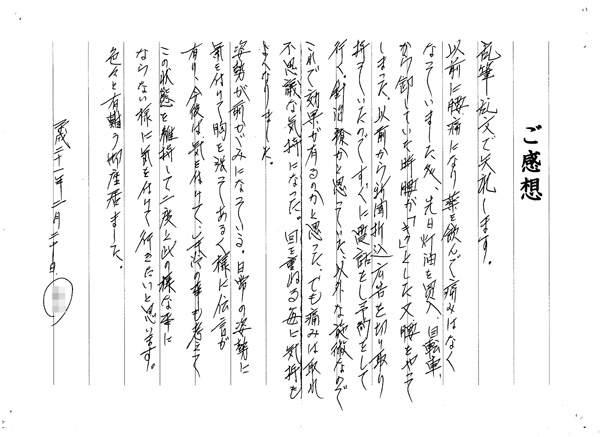 ご感想
乱筆乱文で失礼します。
以前に腰痛になり薬を飲んで痛みはなく
なっていましたが、先日灯油を買入、自転車
から卸していた時腰が「ぎっ」とした又腰をやって
しまった、以前から新聞折込広告を切り取り
持っていたのですぐに電話をし予約をして
行く。針治療かと思っていた、以外な施術なので
これで効果が有るのかと思った、でも痛みは取れ
不思議な気持になった。回を重ねる毎に気持も
よくなりました。
姿勢が前かがみになっている。日常の姿勢に
気を付けて胸を張ってあるく様に伝言が
有り、今後は気を付けて、年令の事も考えて
この状態を維持して二度と此の様な事に
ならない様に気を付けて行きたいと思います。
色々と有難う御座居ました。
歳二十一年二月二十日